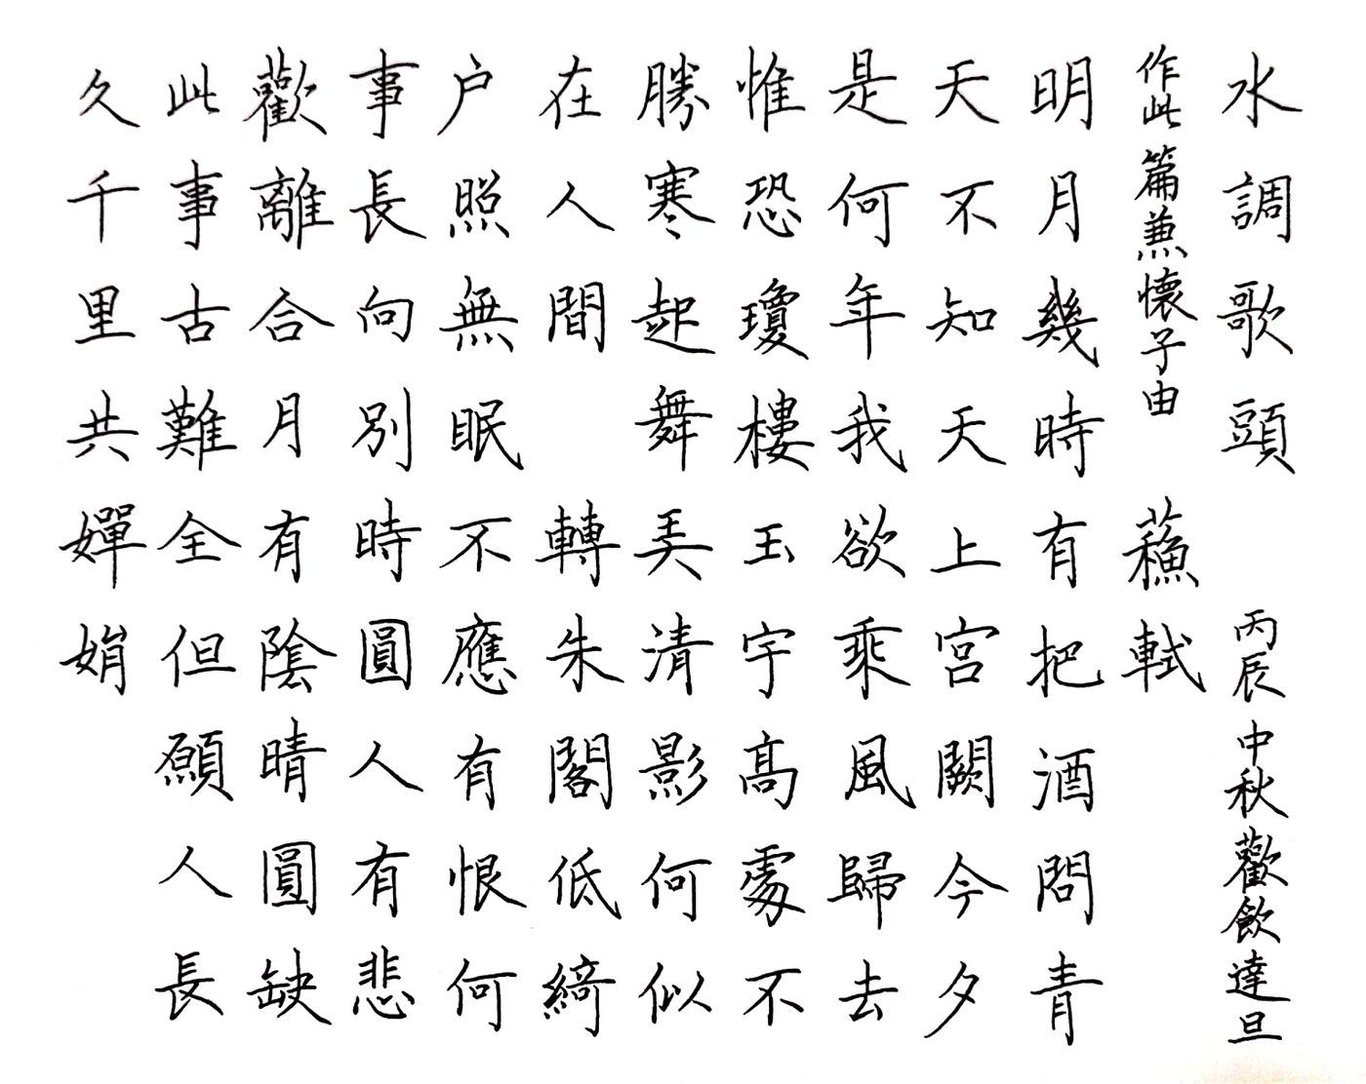 水調歌頭 丙辰中秋歡飲達旦
作此篇兼懷子由 蘓軾
明月幾時有把酒問青
天不知天上宮闕今夕
是何年我欲乘風歸去
惟恐瓊樓玉宇高處不
勝寒起舞弄清影何似
在人間 轉朱閣低綺
户照無眠不應有恨何
事長向別時圓人有悲
歡離合月有陰晴圓缺
此事古難全但願人長
久千里共嬋娟